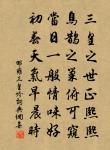 三皇之世正熙熙
烏鵲之巢俯可窺
當日一般情味好
初春天氣早晨時
邵雍三皇吟